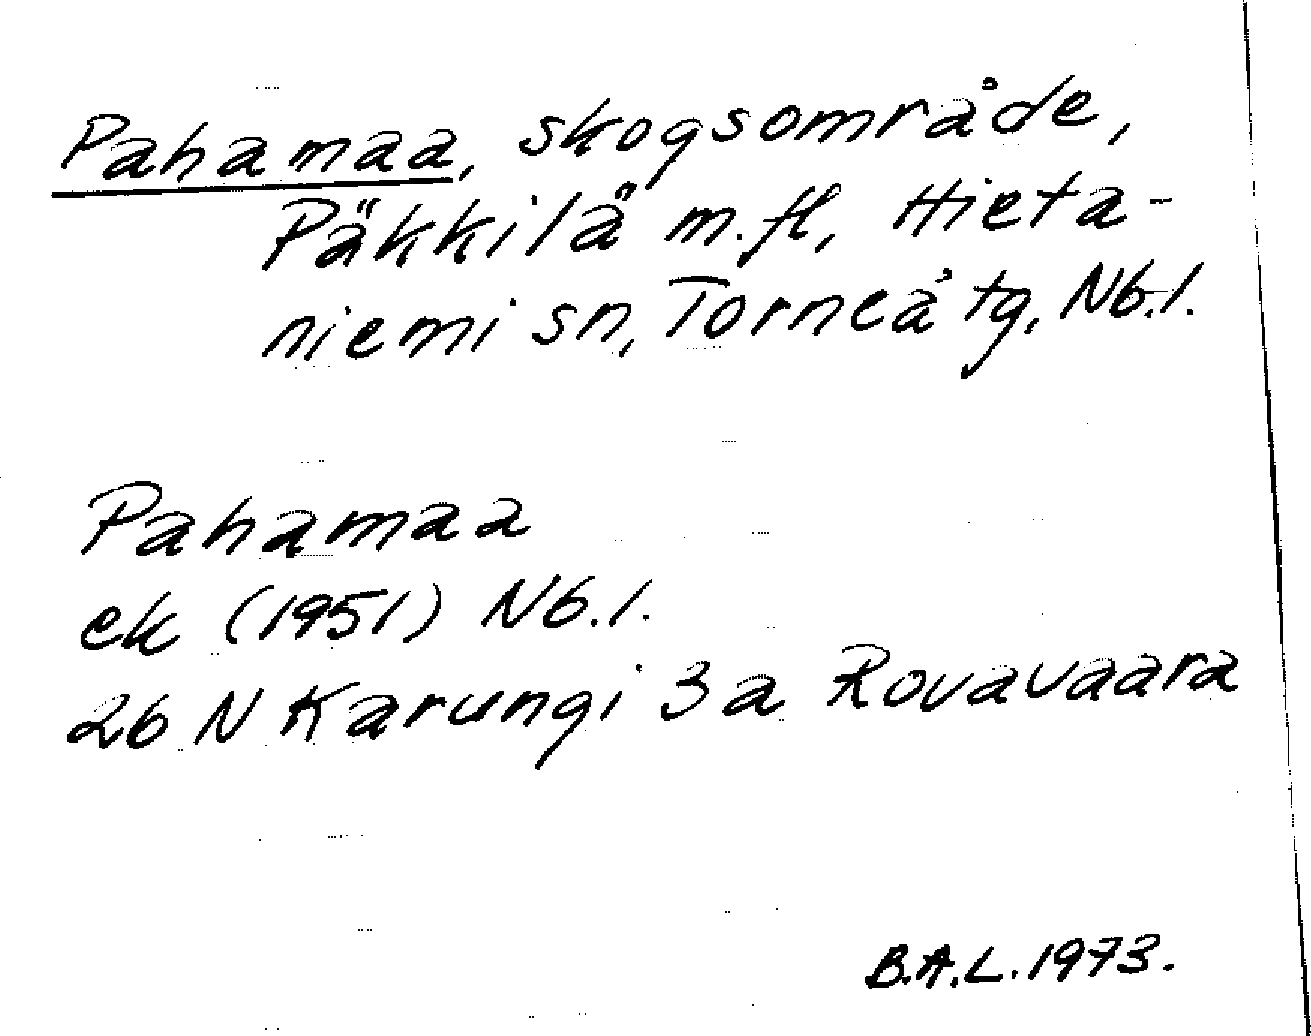 Pahamaa, skogsområde,
Päkkilä m.fl, Hieta-
niemi sn, Torneå tg, Nb.l.
Pahamaa
ek (1951) Nb.l.
26 N Karungi 3a Rovavaara
B.A.L. 1973.